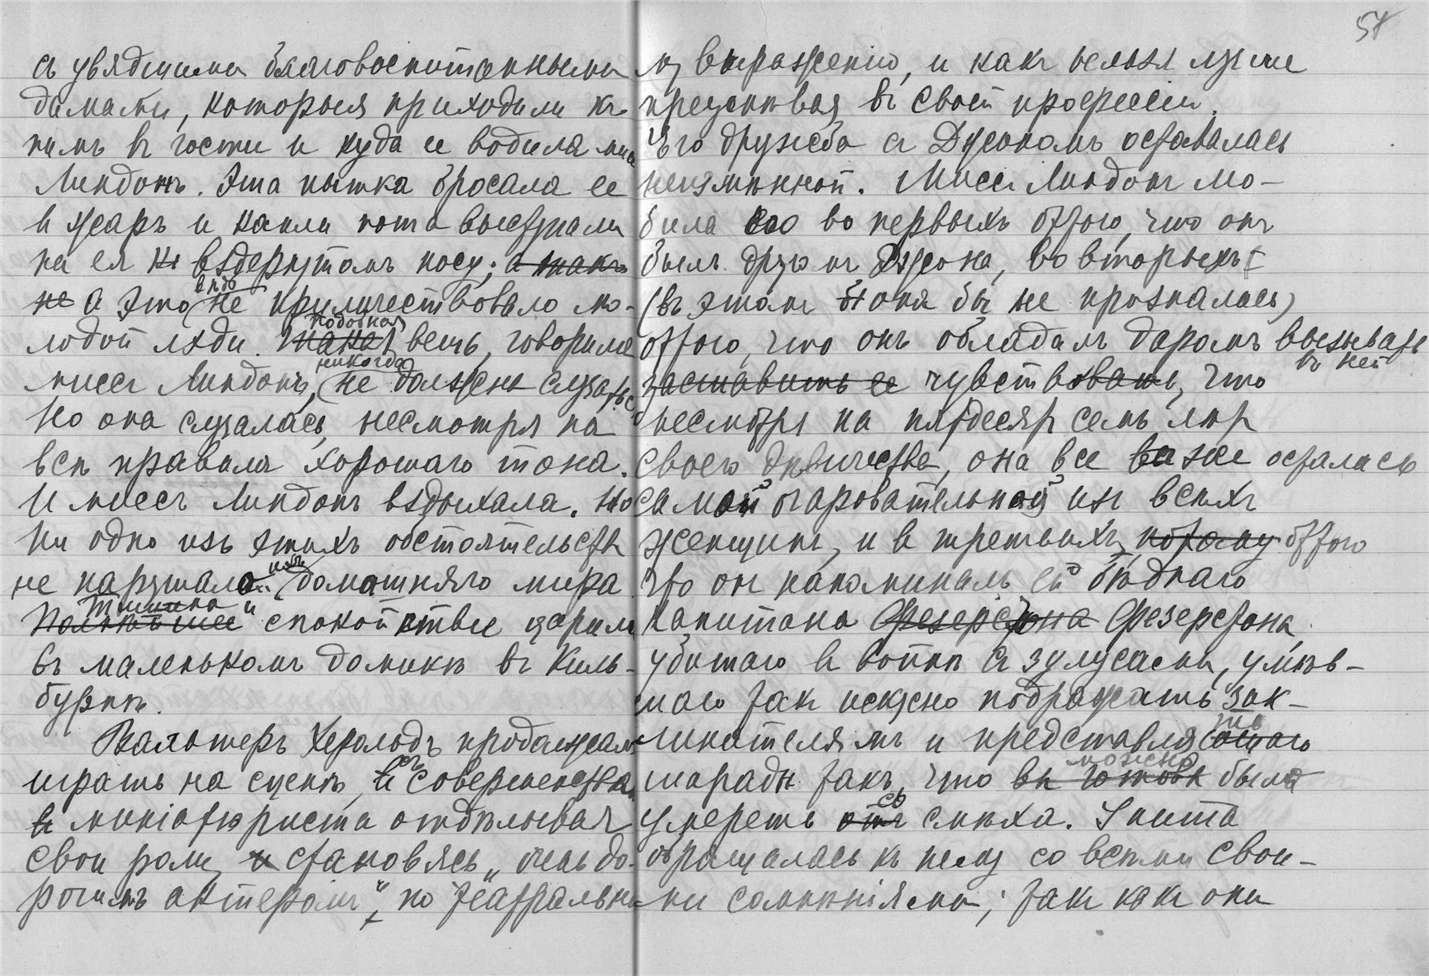 съ увядшими благовоспитанными
дамами, которыя приходили къ
нимъ въ гости и куда ее водила мисс
Линдонъ. Эта пытка бросала ее
въ жаръ и капли пота выступали
на ея вздернутомъ носу; а такъ
не а это не приличествовало мо-
лодой лэди. Такая подобная вещь, говорила
миссъ Линдонъ, никогда не должна случаться
Но она случалась, несмотря на
всѣ правила хорошаго тона.
И миссъ Линдонъ вздыхала. Но
ни одно изъ этихъ обстоятельствъ
не нарушало домашняго мира
Тишина и спокойствіе царили
въ маленькомъ домикѣ въ Киль-
бурнѣ.
Вальтеръ Херольдъ продолжалъ
играть на сценѣ, съ совершенствомъ
миніатюриста отдѣлывая
свои роли и становясь „очень до-
рогимъ актеромъ", по театральному
57
выраженію, и какъ нельзя лучше
преуспѣвая въ своей профессіи.
Его дружба съ Джономъ оставалась
неизмѣнной. Миссъ Линдонъ лю-
била его во первыхъ оттого, что онъ
былъ другомъ Джона, во вторыхъ
(въ этомъ она бы не призналась)
оттого, что онъ обладалъ даромъ вызывать
въ ней
заставить ее чувствовать, что
несмотря на пятьдесятъ семь лѣтъ
своего дѣвичества, она все же осталась
самой очаровательной изъ всѣхъ
женщинъ, и въ третьихъ, потому оттого
что онъ напоминалъ ей бѣднаго
капитана Фезерстона Фезерстона,
убитаго въ войнѣ съ зулусами, умѣв-
шаго такъ искусно подражать зак-
линателямъ и представлять
шарады такъ, что можно было
умереть отъ со смѣха. Унита
обращалась къ нему со всѣми свои-
ми сомнѣніями; такъ какъ они